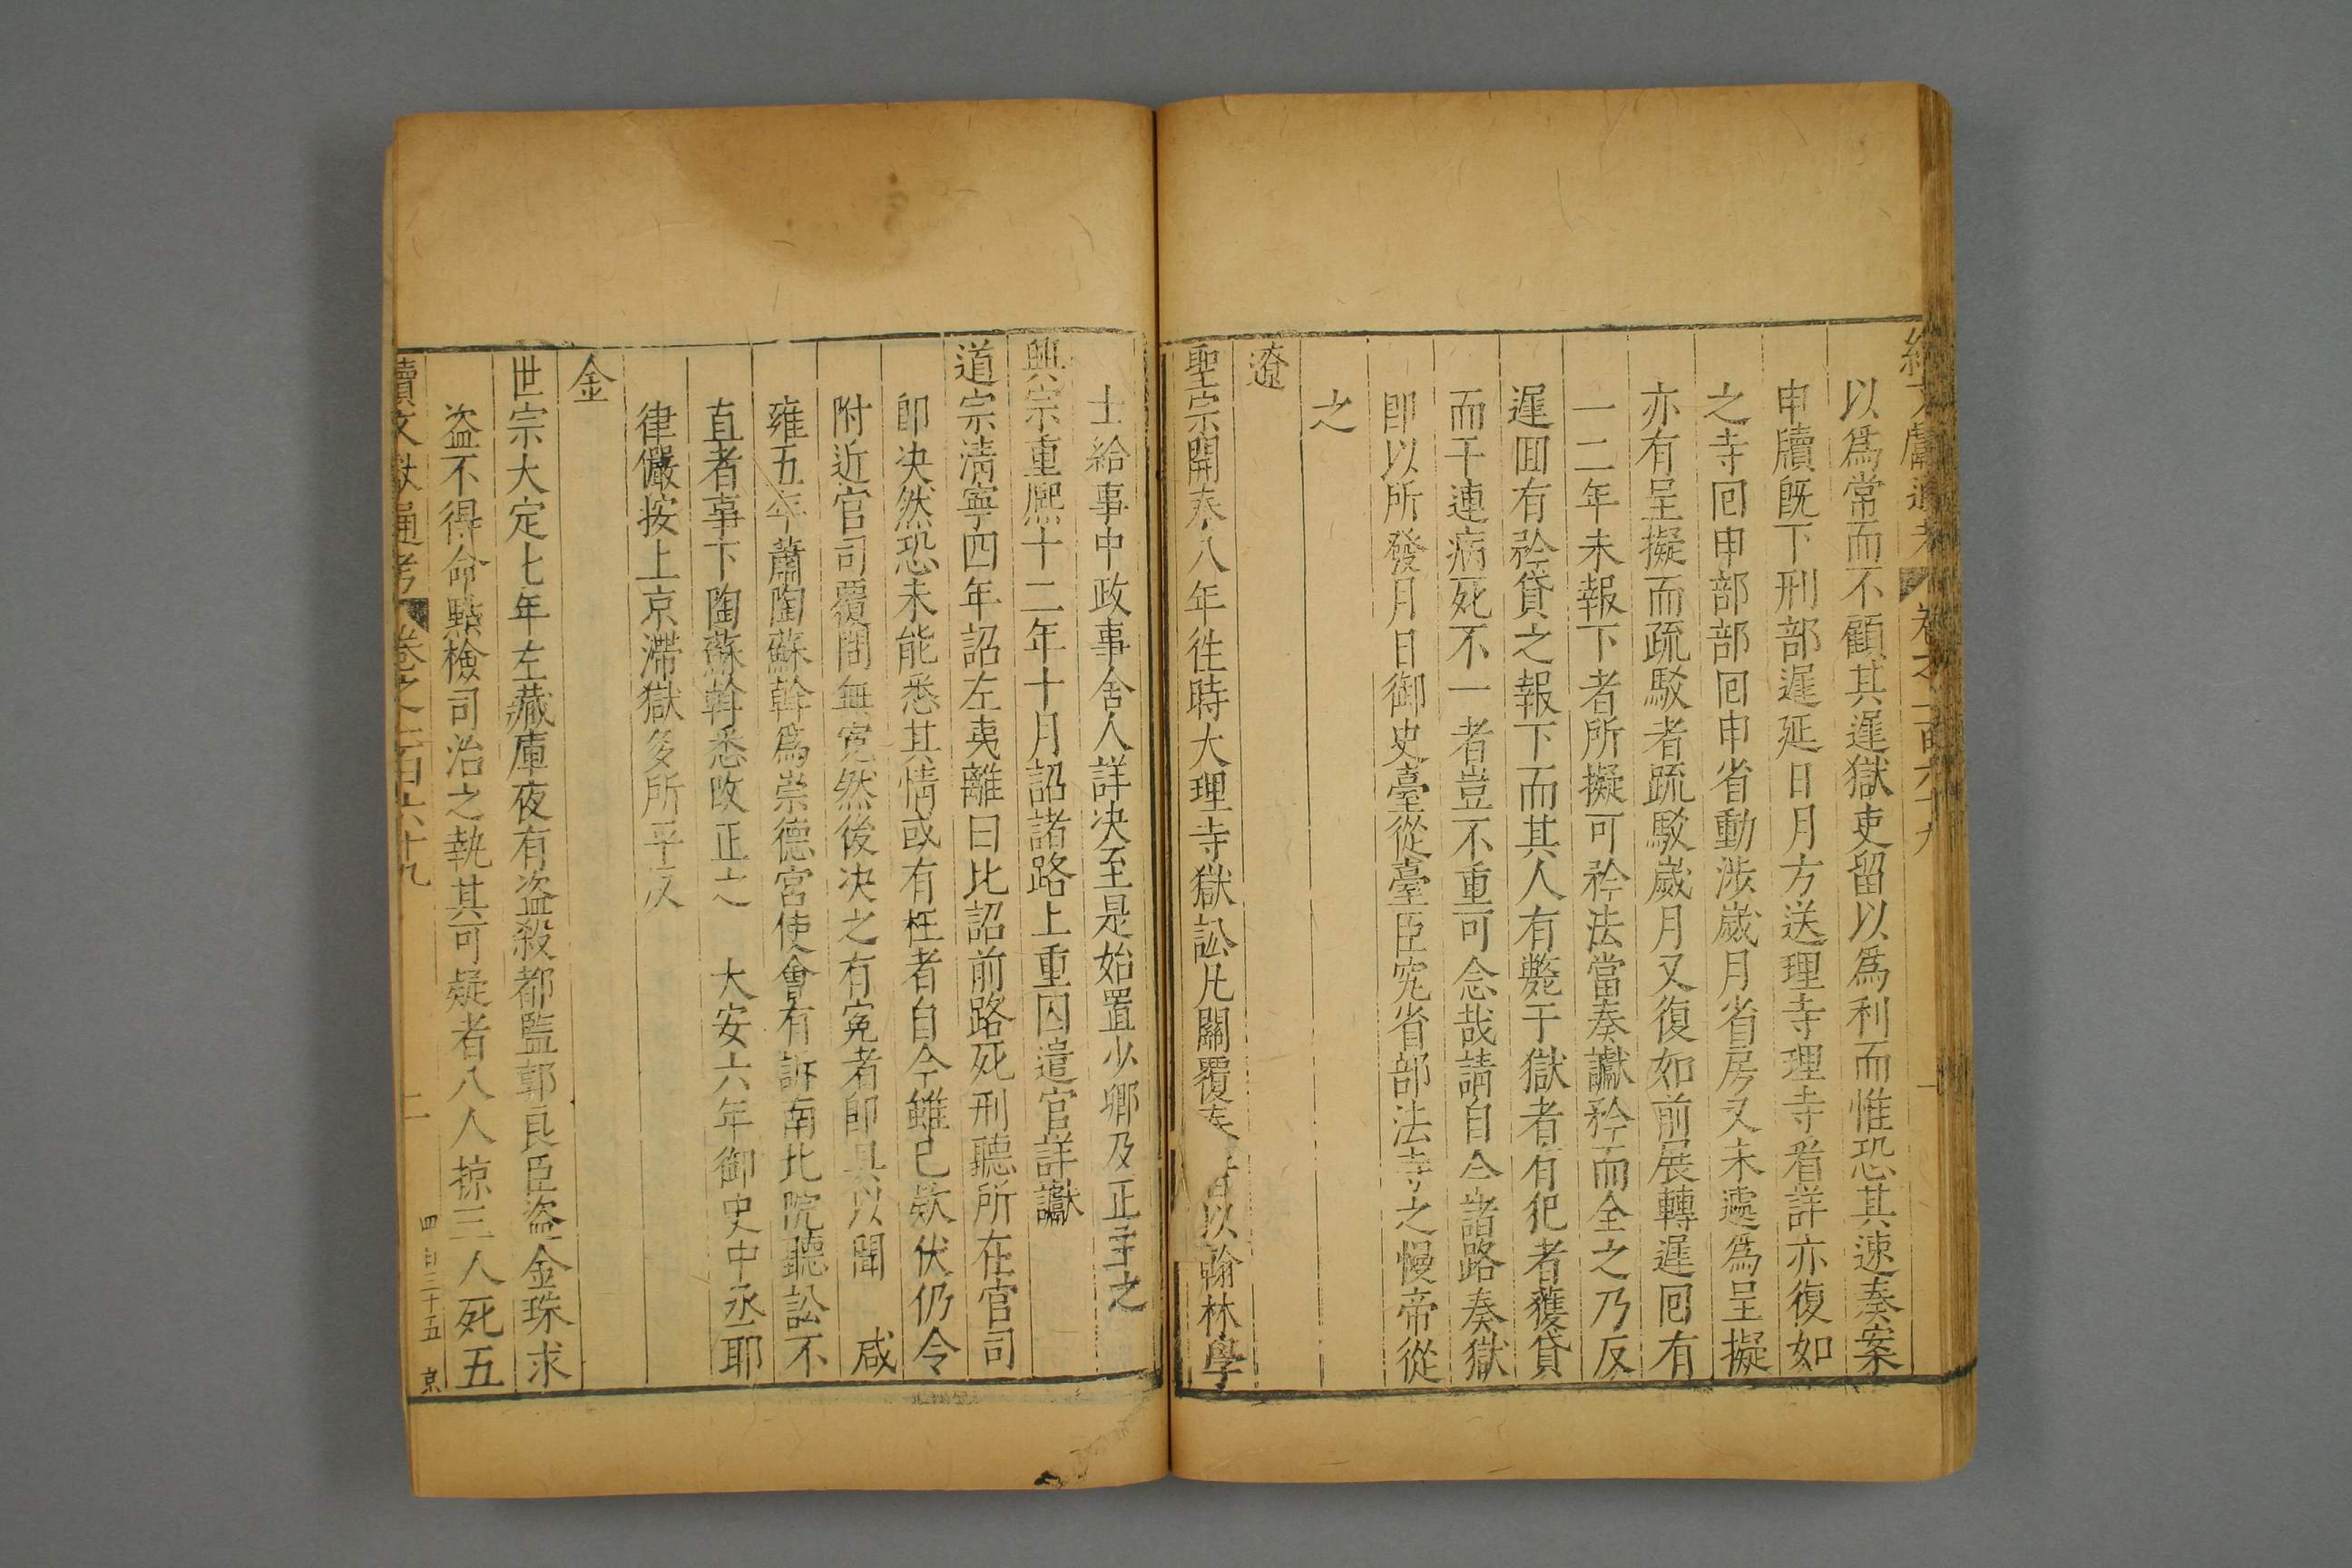 以爲常而不顧其遲獄吏留以爲利而惟恐其速奏案
申牘旣下刑部遲延日月方送理寺理寺看詳亦復如
之寺囘申部部囘申省動涉歲月省房又未遽爲呈擬
亦有呈擬而疏駁者疏駁歲月又復如前展轉遲囘有
一二年未報下者所擬可矜法當奏讞矜而全之乃反
遲囬有矜貸之報下而其人有斃于獄者有犯者獲貸
而干連病死不一者豈不重可念哉請自今諸路奏獄
卽以所發月日御史臺從臺臣究省部法寺之慢帝從
之
遼
聖宗開泰八年徃時大理寺獄訟凡關覆奏者以翰林學
士給事中政事舍人詳决至是始置少卿及正主之
興宗重熈十二年十月詔諸路上重囚遣官詳讞
道宗清寧四年詔左夷離曰比詔前路死刑聽所在官司
卽决然恐未能悉其情或有枉者自今雖已欵伏仍令
附近官司覆問無寃然後决之有寃者卽具以聞　咸
雍五年蕭陶蘇斡爲崇德宮使會有訴南北院聽訟不
直者事下陶蘇斡悉改正之　大安六年御史中丞耶
律儼按上京滯獄多所平反
金
世宗大定七年左藏庫夜有盗殺都監郭良臣盗金珠求
盗不得命點檢司治之執其可疑者八人掠三人死五
續文獻通考　卷之一百六十九　二　四百三十五　京